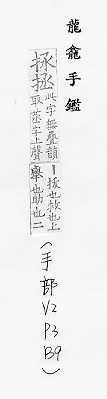 龍龕手鑑
拯拯
此字無疊韻一拔也救也上
取蒸字上聲舉也助也二
(手部V2P3B9)